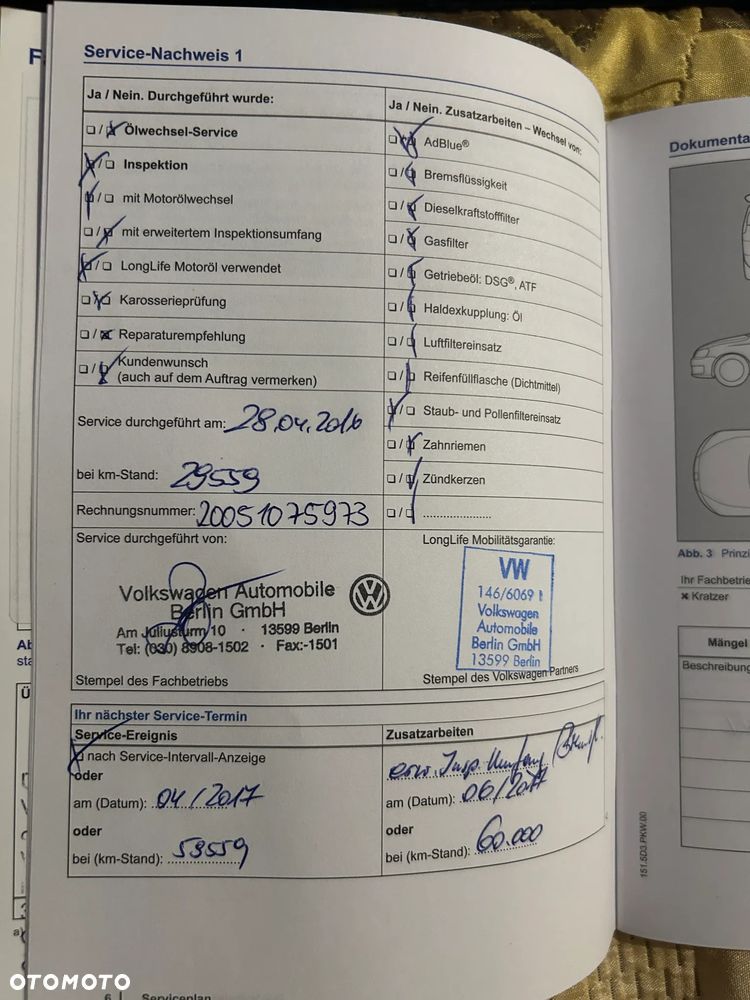 Service-Nachweis 1
Ja / Nein. Durchgeführt wurde:
Ölwechsel-Service
Inspektion
mit Motorölwechsel
mit erweitertem Inspektionsumfang
LongLife Motoröl verwendet
Karosserieprüfung
Reparaturempfehlung
Kundenwunsch
(auch auf dem Auftrag vermerken)
Service durchgeführt am: 28.04.2016
bei km-Stand: 29559
Rechnungsnummer: 20051075973
Service durchgeführt von:
Volkswagen Automobile
Berlin GmbH
Am Juliusturm 10 · 13599 Berlin
Tel: (030) 8908-1502 · Fax:-1501
Stempel des Fachbetriebs
Ja / Nein. Zusatzarbeiten – Wechsel von:
AdBlue®
Bremsflüssigkeit
Dieselkraftstofffilter
Gasfilter
Getriebeöl: DSG®, ATF
Haldexkupplung: Öl
Luftfiltereinsatz
Reifenfüllflasche (Dichtmittel)
Staub- und Pollenfiltereinsatz
Zahnriemen
Zündkerzen
LongLife Mobilitätsgarantie:
VW
146/6069
Volkswagen
Automobile
Berlin GmbH
13599 Berlin
Stempel des Volkswagen Partners
Ihr nächster Service-Termin
Service-Ereignis
nach Service-Intervall-Anzeige
oder
am (Datum): 04/2017
oder
bei (km-Stand): 59559
Zusatzarbeiten
erw. Insp. Umfang
am (Datum): 06/2017
oder
bei (km-Stand): 60.000
6 | Serviceplan
Dokumenta
Abb. 3 Prinzi
Ihr Fachbetrie
× Kratzer
Mängel
Beschreibung
151.5D3.PKW.00
OTOMOTO